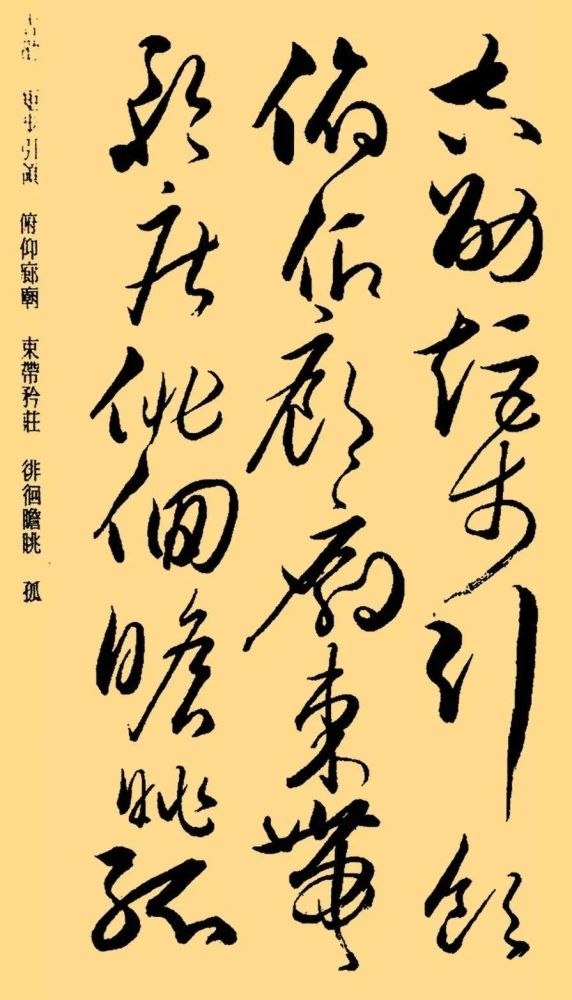 吉劭矩步引領
俯仰廊廟束帶
矜莊徘徊瞻眺孤
吉劭 矩步引領 俯仰廊廟 束帶矜莊 徘徊瞻眺 孤